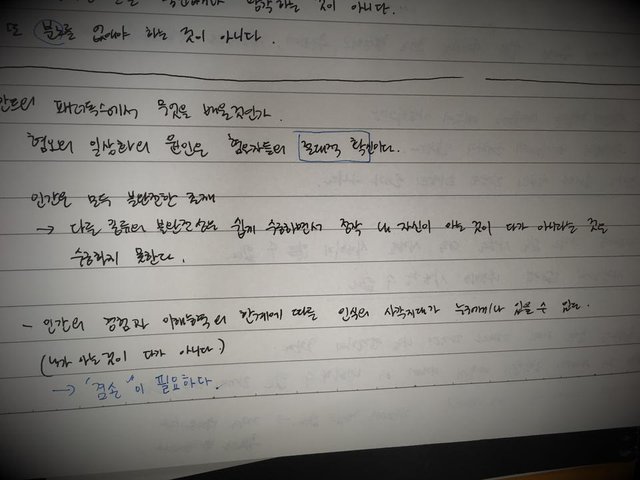 생각하는 것이 아니다.
또 분노를 없애야 하는 것이 아니다.
패러독스에서 무엇을 배울것인가.
혐오의 일상화의 원인은 혐오자들의 절대적 확신이다.
인간은 모두 불완전한 존재
→ 다른 종류의 불완전성은 쉽게 수용하면서 정작 내 자신이 아는 것이 다가 아니라는 것은
수용하지 못한다.
- 인간의 경험과 이해능력의 한계에 따른 인식의 사각지대가 누구에게나 있을 수 있다.
(내가 아는 것이 다가 아니다)
→ "겸손"이 필요하다.